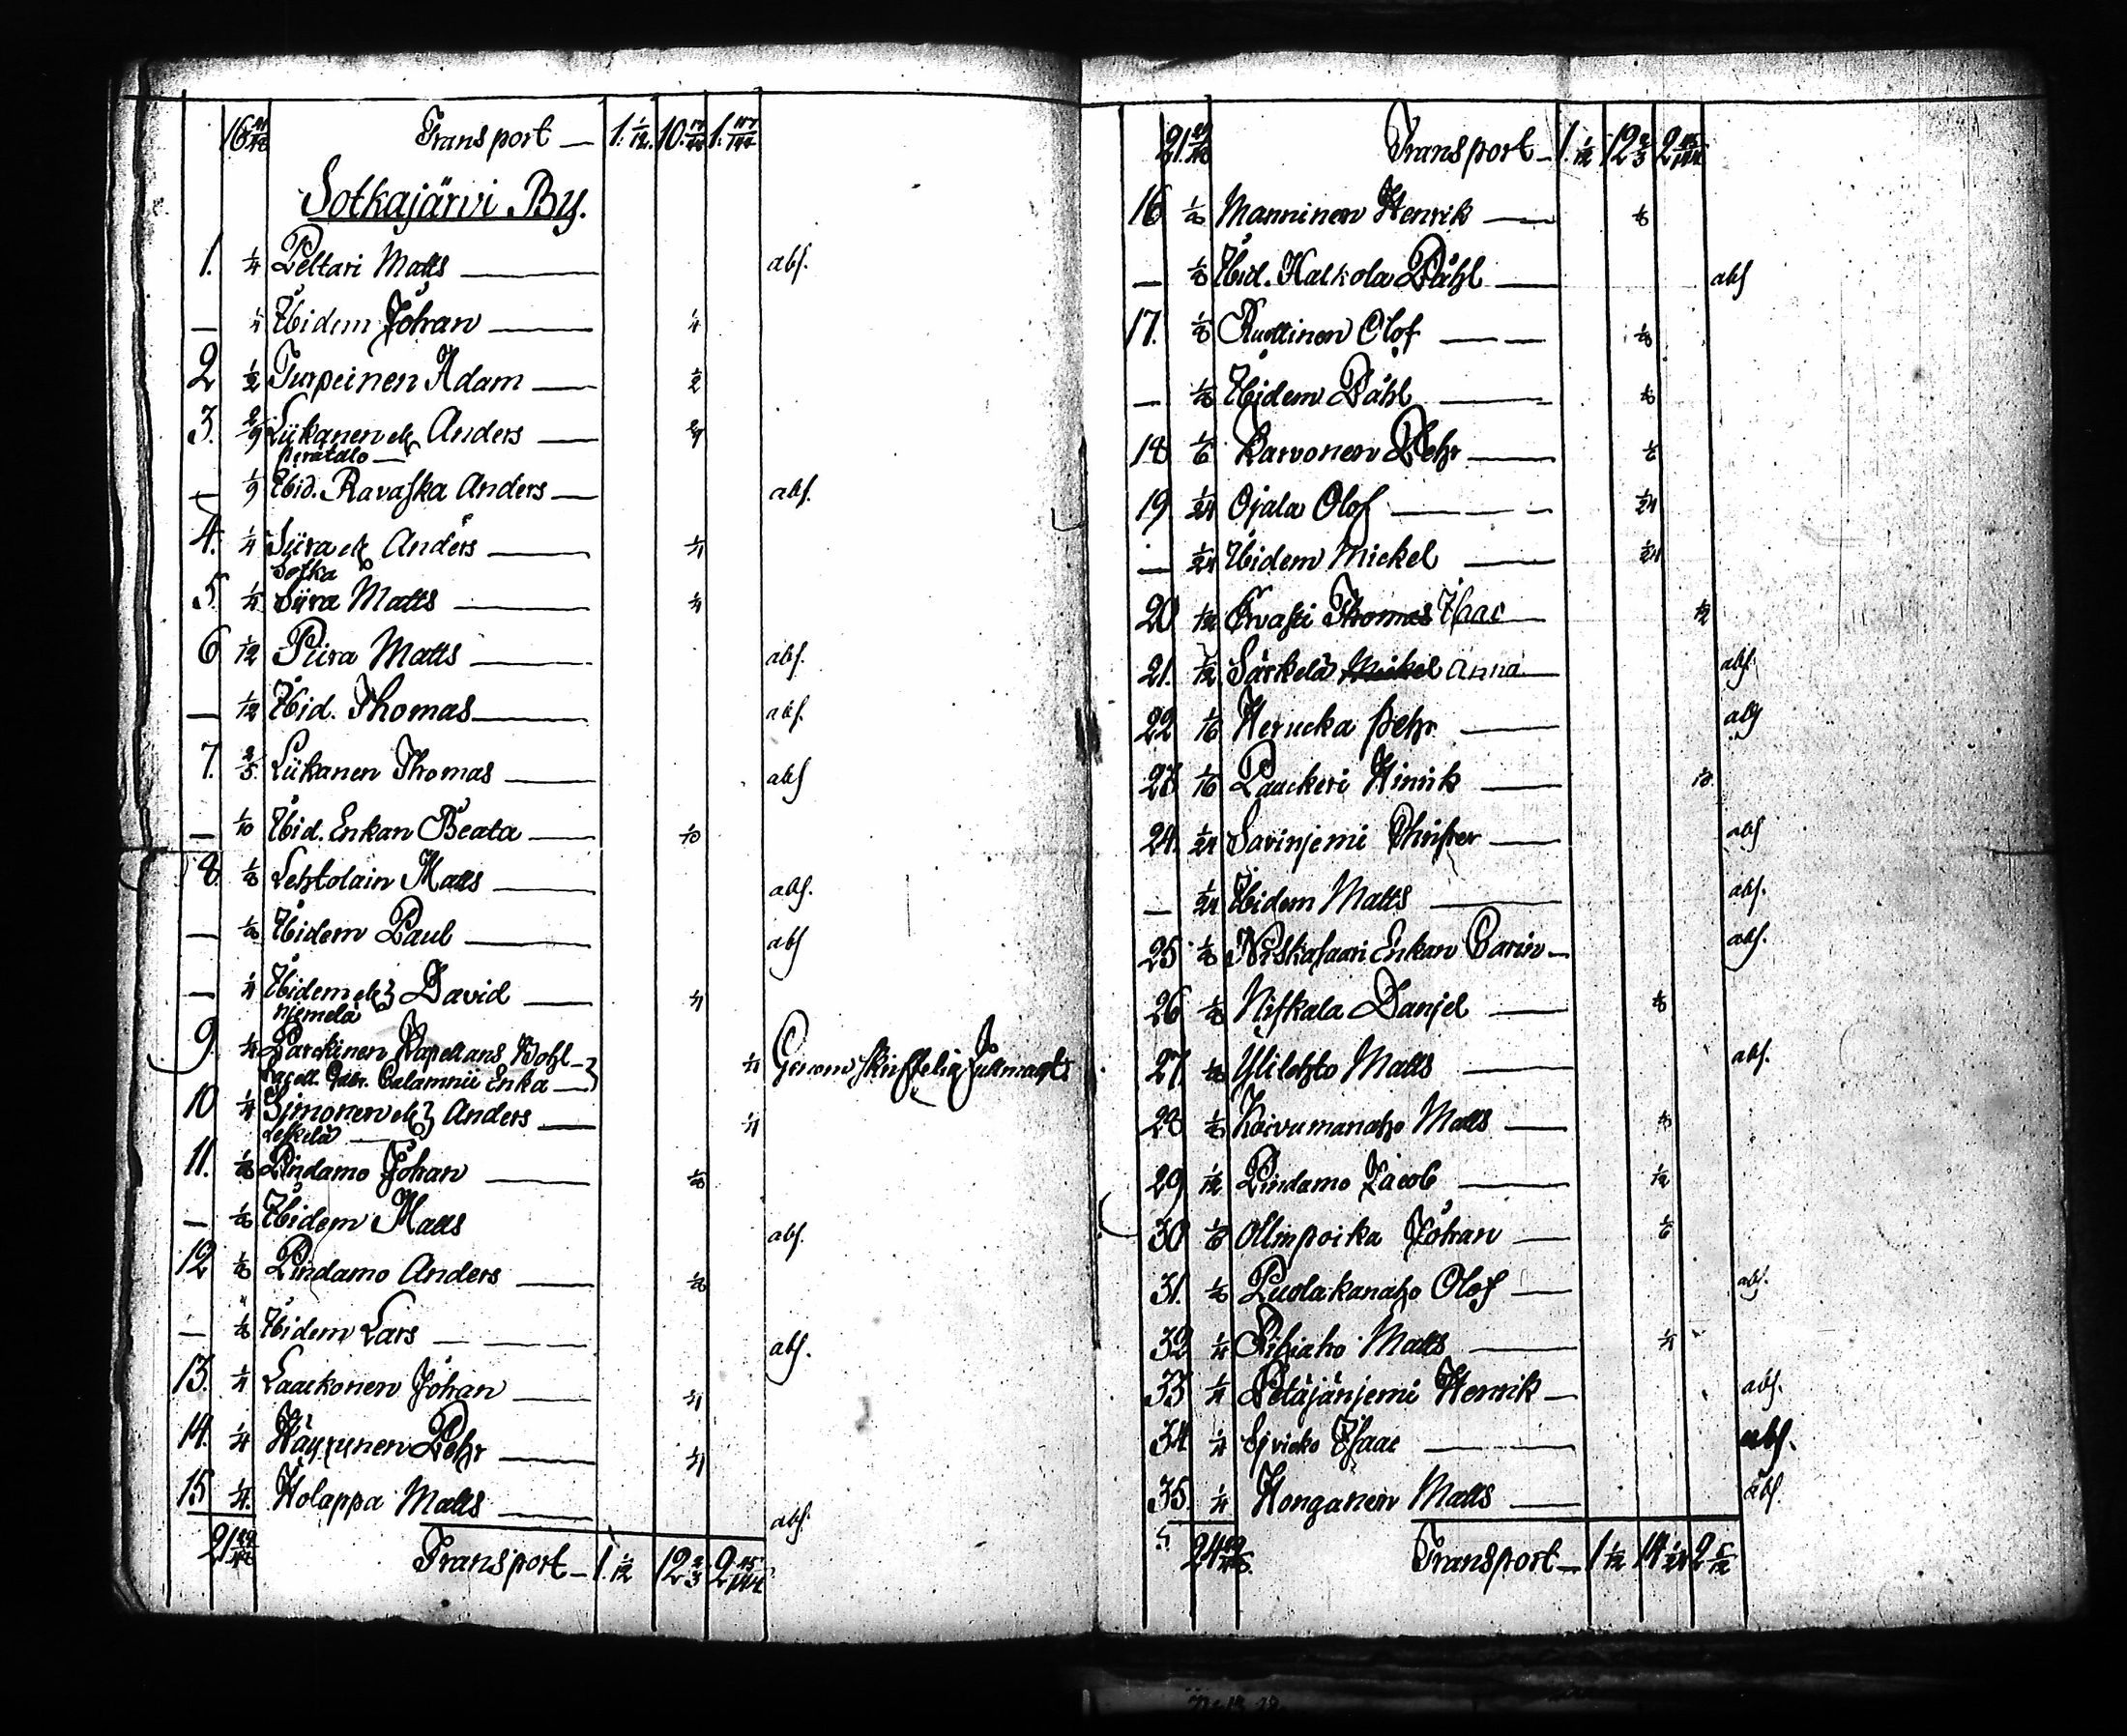 Transport — 1. 1/12. 10. 1.
Sotkajärvi By.
1. 1/4 Peltari Matts — abs.
— 1/4 Ibidem Johan — 1/4
2 1/2 Turpeinen Adam — 1/2
3. 2/9 Liikanen el. Anders — 2/9
perätalo —
— 1/9 Ibid. Ravaska Anders — abs.
4. 1/4 Siira el. Anders — 1/4
Sotka
5. 1/4 Siira Matts — 1/4
6 1/12 Piira Matts — abs.
— 1/12 Ibid. Thomas — abs.
7. 2/5. Liikanen Thomas — abs
— 1/10 Ibid. Enkan Beata — 1/10
8. 1/8 Lehtolain Matts — abs.
— 1/8 Ibidem Paul — abs
— 1/4 Ibidem el. David — 1/4
Njemelä
9. 1/4 Parckinen Kapellans Bohl —
Cacell. Gabr. Calamnii Enka — 1/4 Genom skriftelig fullmagt
10 1/4 Simonen el. Anders — 1/4
Leskelä —
11. 1/8 Pindamo Johan — 1/8
— 1/8 Ibidem Matts abs.
12 1/8 Pindamo Anders — 1/8
— 1/8 Ibidem Lars — abs.
13. 1/4 Laackonen Johan — 1/4
14. 1/4 Häyrynen Pehr — 1/4
15 1/4. Holappa Matts — abs.
Transport — 1. 1/12 12 2/3 2
Transport — 1. 1/12 12 2/3 2
16 1/8 Manninen Henrik — 1/8
— 1/8 Ibid. Halkola Påhl — abs
17. 1/8 Ruottinen Olof — 1/8
— 1/8 Ibidem Påhl — 1/8
18 1/6 Karvonen Pehr — 1/6
19 1/24 Ojala Olof — 1/24
— 1/24 Ibidem Mickel — 1/24
20 1/12 Ervasti Thomas Isaac — 1/12
21. 1/12 Särkelä Mickel Anna — abs.
22 1/16 Herucka Pehr — abs
23 1/16 Paackeri Hinrik —
24. 1/24 Savinjemi Christer — abs
— 1/24 Ibidem Matts — abs.
25 1/8 Niskasaari Enkan Carin — abs.
26 1/8 Niskala Danjel — 1/8
27. 1/8 Ylilehto Matts — abs.
28 1/8 Koivumanaho Matts — 1/8
29 1/12 Pindamo Jacob — 1/12
30 1/6 Ollinpoika Johan — 1/6
31. 1/8 Puolakanaho Olof — abs.
32 1/4 Matts — 1/4
33 1/4 Petäjänjemi Henrik — abs.
34 1/4 Isaac — abs.
35 1/4 Honganen Matts — abs.
Transport — 1 1/12 14 1/24 2 5/12